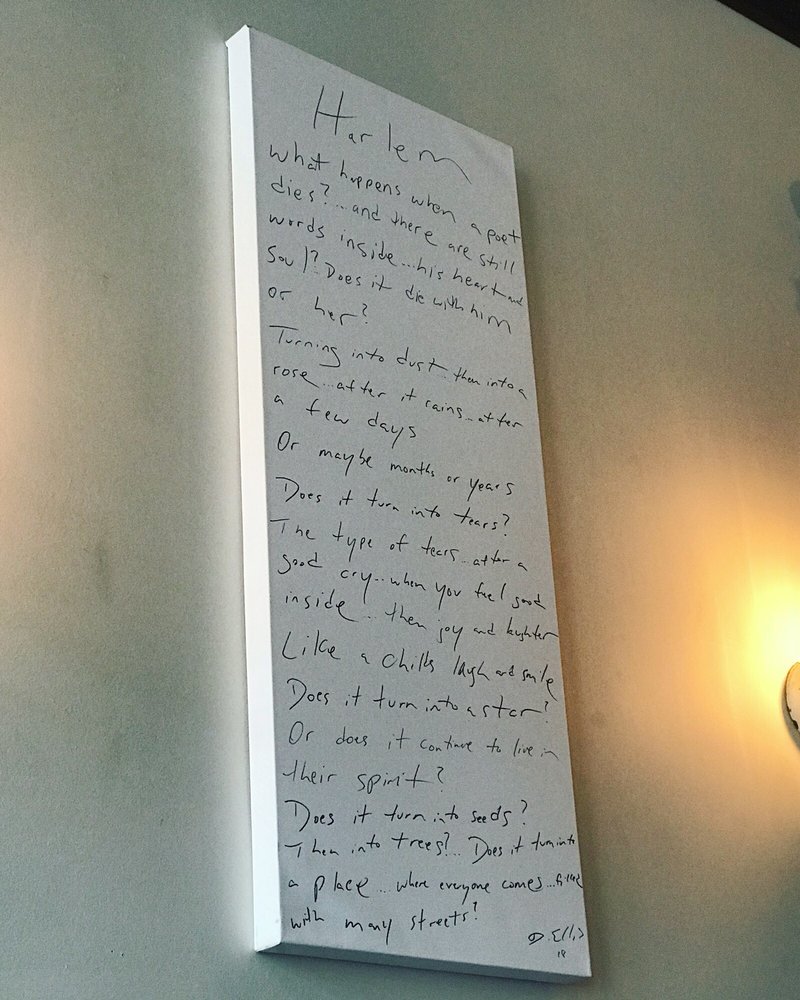 Harlem
What happens when a poet
dies?...and there are still
words inside...his heart and
soul? Does it die with him
or her?
Turning into dust..then into a
rose...after it rains...after
a few days
Or maybe months or years
Does it turn into tears?
The type of tears...after a
good cry...when you feel good
inside...then joy and laughter
Like a childs laugh and smile
Does it turn into a star?
Or does it continue to live in
their spirit?
Does it turn into seeds?
Then into trees?.. Does it turn into
a place...where everyone comes...filled
with many streets?
D. Ellis
18